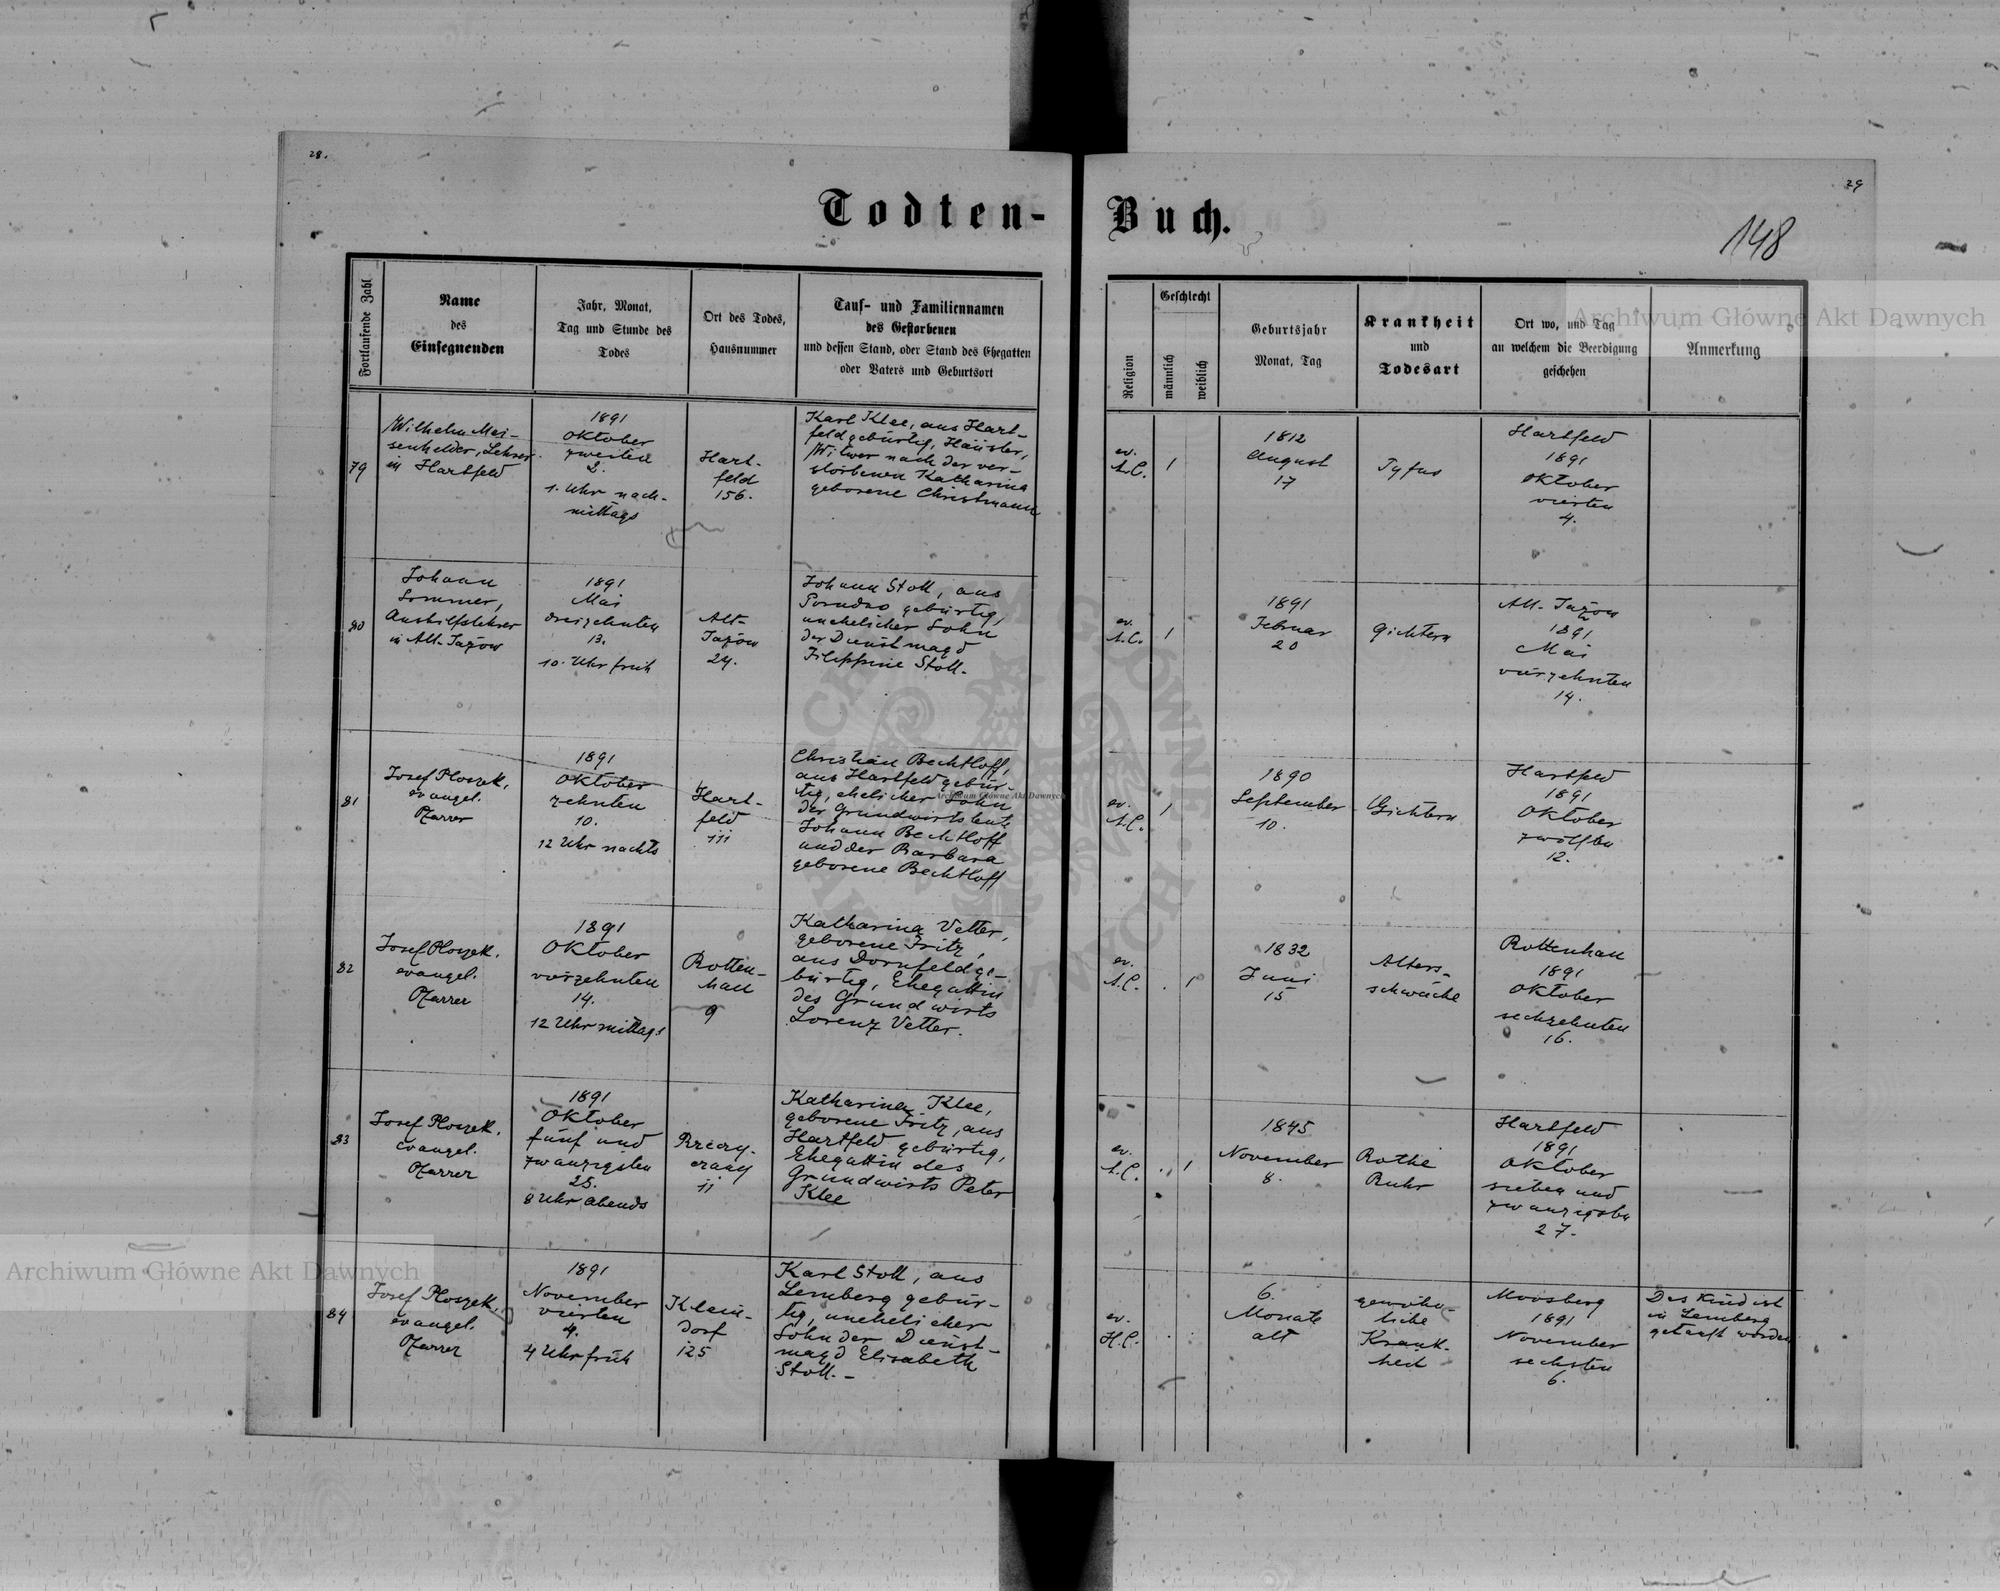 28.
29
Todten-
Buch.
148
Fortlaufende Zahl
Name
des
Einsegnenden
Jahr, Monat,
Tag und Stunde des
Todes
Ort des Todes,
Hausnummer
Tauf- und Familiennamen
des Gestorbenen
und dessen Stand, oder Stand des Ehegatten
oder Vaters und Geburtsort
Religion
Geschlecht
männlich
weiblich
Geburtsjahr
Monat, Tag
Krankheit
und
Todesart
Ort wo, und Tag
an welchem die Beerdigung
geschehen
Anmerkung
79
Wilhelm Mei-
senhelder, Lehrer
in Hartfeld
1891
Oktober
zweiten
2.
1. Uhr nach-
mittags
Hart-
feld
156.
Karl Klee, aus Hart-
feld gebürtig, Häusler,
Witwer nach der ver-
storbenen Katharina
geborene Christmann
ev.
A.C.
1
1812
August
17
Tyfus
Hartfeld
1891
Oktober
vierten
4.
80
Johann
Sommer,
Aushilfslehrer
in Alt-Jazow
1891
Mai
dreizehnten
13.
10. Uhr früh
Alt-
Jazów
24.
Johann Stoll, aus
gebürtig,
unehelicher Sohn
der Dienstmagd
Filippine Stoll.
ev.
A.C.
1
1891
Februar
20
Gichtern
Alt-Jazow
1891
Mai
vierzehnten
14.
81
Josef Ploszek,
evangel.
Pfarrer
1891
Oktober
zehnten
10.
12 Uhr nachts
Hart-
feld
111
Christian Bechtloff,
aus Hartfeld gebür-
tig, ehelicher Sohn
der Grundwirtsleute
Johann Bechtloff
und der Barbara
geborene Bechtloff
ev.
A.C.
1
1890
September
10.
Gichtern
Hartfeld
1891
Oktober
zwölften
12.
82
Josef Ploszek.
evangel.
Pfarrer
1891
Oktober
vierzehnten
14.
12 Uhr mittags
Rotten-
han
9
Katharina Vetter,
geborene Fritz,
aus Dornfeld ge-
bürtig, Ehegattin
des Grundwirts
Lorenz Vetter.
ev.
A.C.
1
1832
Juni
15
Alters-
schwäche
Rottenhan
1891
Oktober
sechzehnten
16.
83
Josef Ploszek.
evangel.
Pfarrer
1891
Oktober
fünf und
zwanzigsten
25.
8 Uhr abends
11
Katharina Klee,
geborene Fritz, aus
Hartfeld gebürtig,
Ehegattin des
Grundwirts Peter
Klee
ev.
A.C.
1
1845
November
8.
Rothe
Ruhr
Hartfeld
1891
Oktober
sieben und
zwanzigsten
27.
84
Josef Ploszek,
evangel.
Pfarrer
1891
November
vierten
4.
4 Uhr früh
Klein-
dorf
125
Karl Stoll, aus
Lemberg gebür-
tig, unehelicher
Sohn der Dienst-
magd Elisabeth
Stoll.-
ev.
H.C.
6.
Monate
alt
gewöhn-
liche
Krank-
heit
Moosberg
1891
November
sechsten
6.
Das Kind ist
in Lemberg
getauft worden
Archiwum Główne Akt Dawnych
Archiwum Główne Akt Dawnych
Archiwum Główne Akt Dawnych